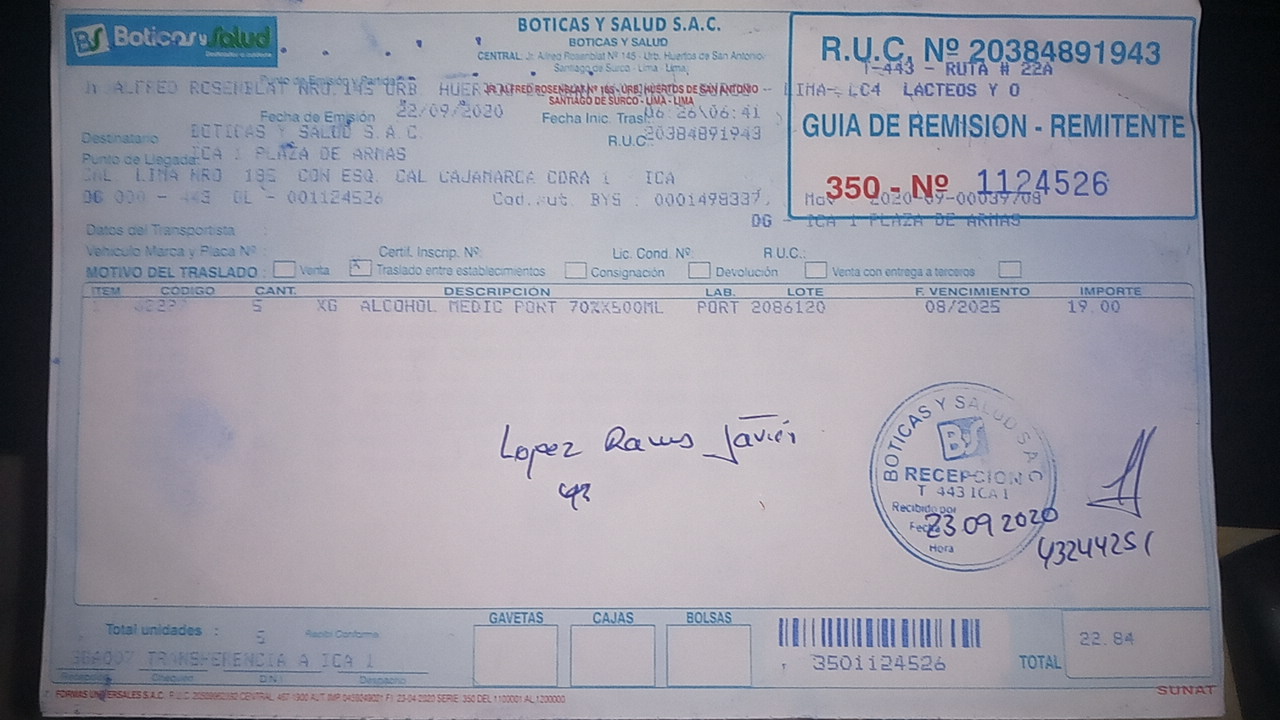 BS Boticas y Salud
BOTICAS Y SALUD S.A.C.
BOTICAS Y SALUD
CENTRAL: Jr. Alfredo Rosenblat Nº 145 - Urb. Huertos de San Antonio
Santiago de Surco - Lima - Lima
R.U.C. Nº 20384891943
T-443 - RUTA # 22A
Punto de Emisión y Partida
Jr ALFRED ROSENBLAT NRO.145 URB. HUER
JR. ALFREDO ROSENBLAT Nº 165 - URB. HUERTOS DE SAN ANTONIO
SANTIAGO DE SURCO - LIMA - LIMA
LIMA- LC4 LACTEOS Y O
Fecha de Emisión 22/09/2020 Fecha Inic. Tras. 06:26\06:41
GUIA DE REMISION - REMITENTE
Destinatario BOTICAS Y SALUD S.A.C. R.U.C. 20384891943
Punto de Llegada: ICA 1 PLAZA DE ARMAS
CAL. LIMA NRO 185 CON ESQ. CAL CAJAMARCA CDRA 1 ICA
350 - Nº 1124526
DG 000 - 443 OL - 001124526 Cod.Aut. BYS : 0001498337, Mov 2020-09-00039708
DG - ICA 1 PLAZA DE ARMAS
Datos del Transportista
Vehiculo Marca y Placa Nº : Certif. Inscrip. Nº: Lic. Cond. Nº R.U.C.:
MOTIVO DEL TRASLADO : Venta Traslado entre establecimientos Consignación Devolución Venta con entrega a terceros
ITEM CODIGO CANT. DESCRIPCIÓN LAB. LOTE F. VENCIMIENTO IMPORTE
5 XG ALCOHOL MEDIC PORT 70%X500ML PORT 2086120 08/2025 19.00
Lopez Ramos Javier
43
BOTICAS Y SALUD S.A.C
BS
RECEPCION
T 443 ICA 1
Recibido por
Fecha 23 09 2020
Hora
43244251
Total unidades : 5 Recibi Conforme
GAVETAS CAJAS BOLSAS
3501124526
TOTAL 22.84
TRANSFERENCIA A ICA 1
Recepción Chequeo D.N.I. Despacho
FORMAS UNIVERSALES S.A.C. 23-04-2020 SERIE: 350 DEL 1100001 AL 1200000
SUNAT